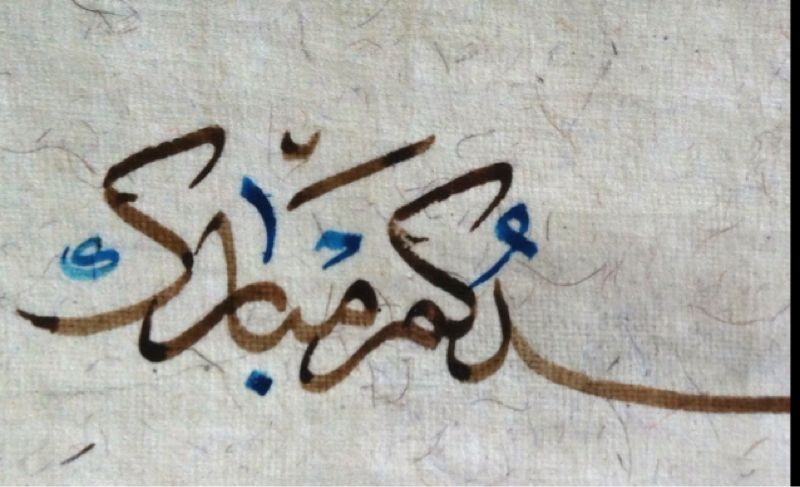 ـدُكم مبارك